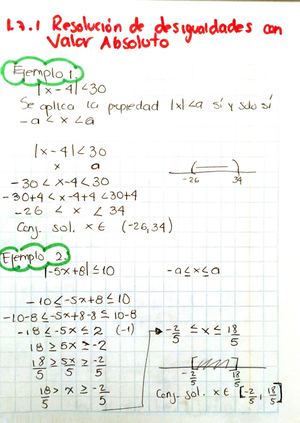 1.7.1 Resolución de desigualdades con
Valor Absoluto
Ejemplo 1
|x-4|<30
Se aplica la propiedad |x|<a sí y solo sí
-a<x<a
|x-4|<30
x a
-30<x-4<30
-30+4<x-4+4<30+4
-26 < x < 34
Conj. sol. x∈ (-26,34)
-26 34
Ejemplo 2
|-5x+8|≤10
-10≤-5x+8≤10
-10-8≤-5x+8-8≤10-8
-18≤-5x≤2 (-1)
18≥5x≥-2
18/5≥5x/5≥-2/5
18/5>x≥-2/5
-a≤x≤a
-2/5≤x≤18/5
-2/5 18/5
Conj. sol. x∈[-2/5, 18/5]